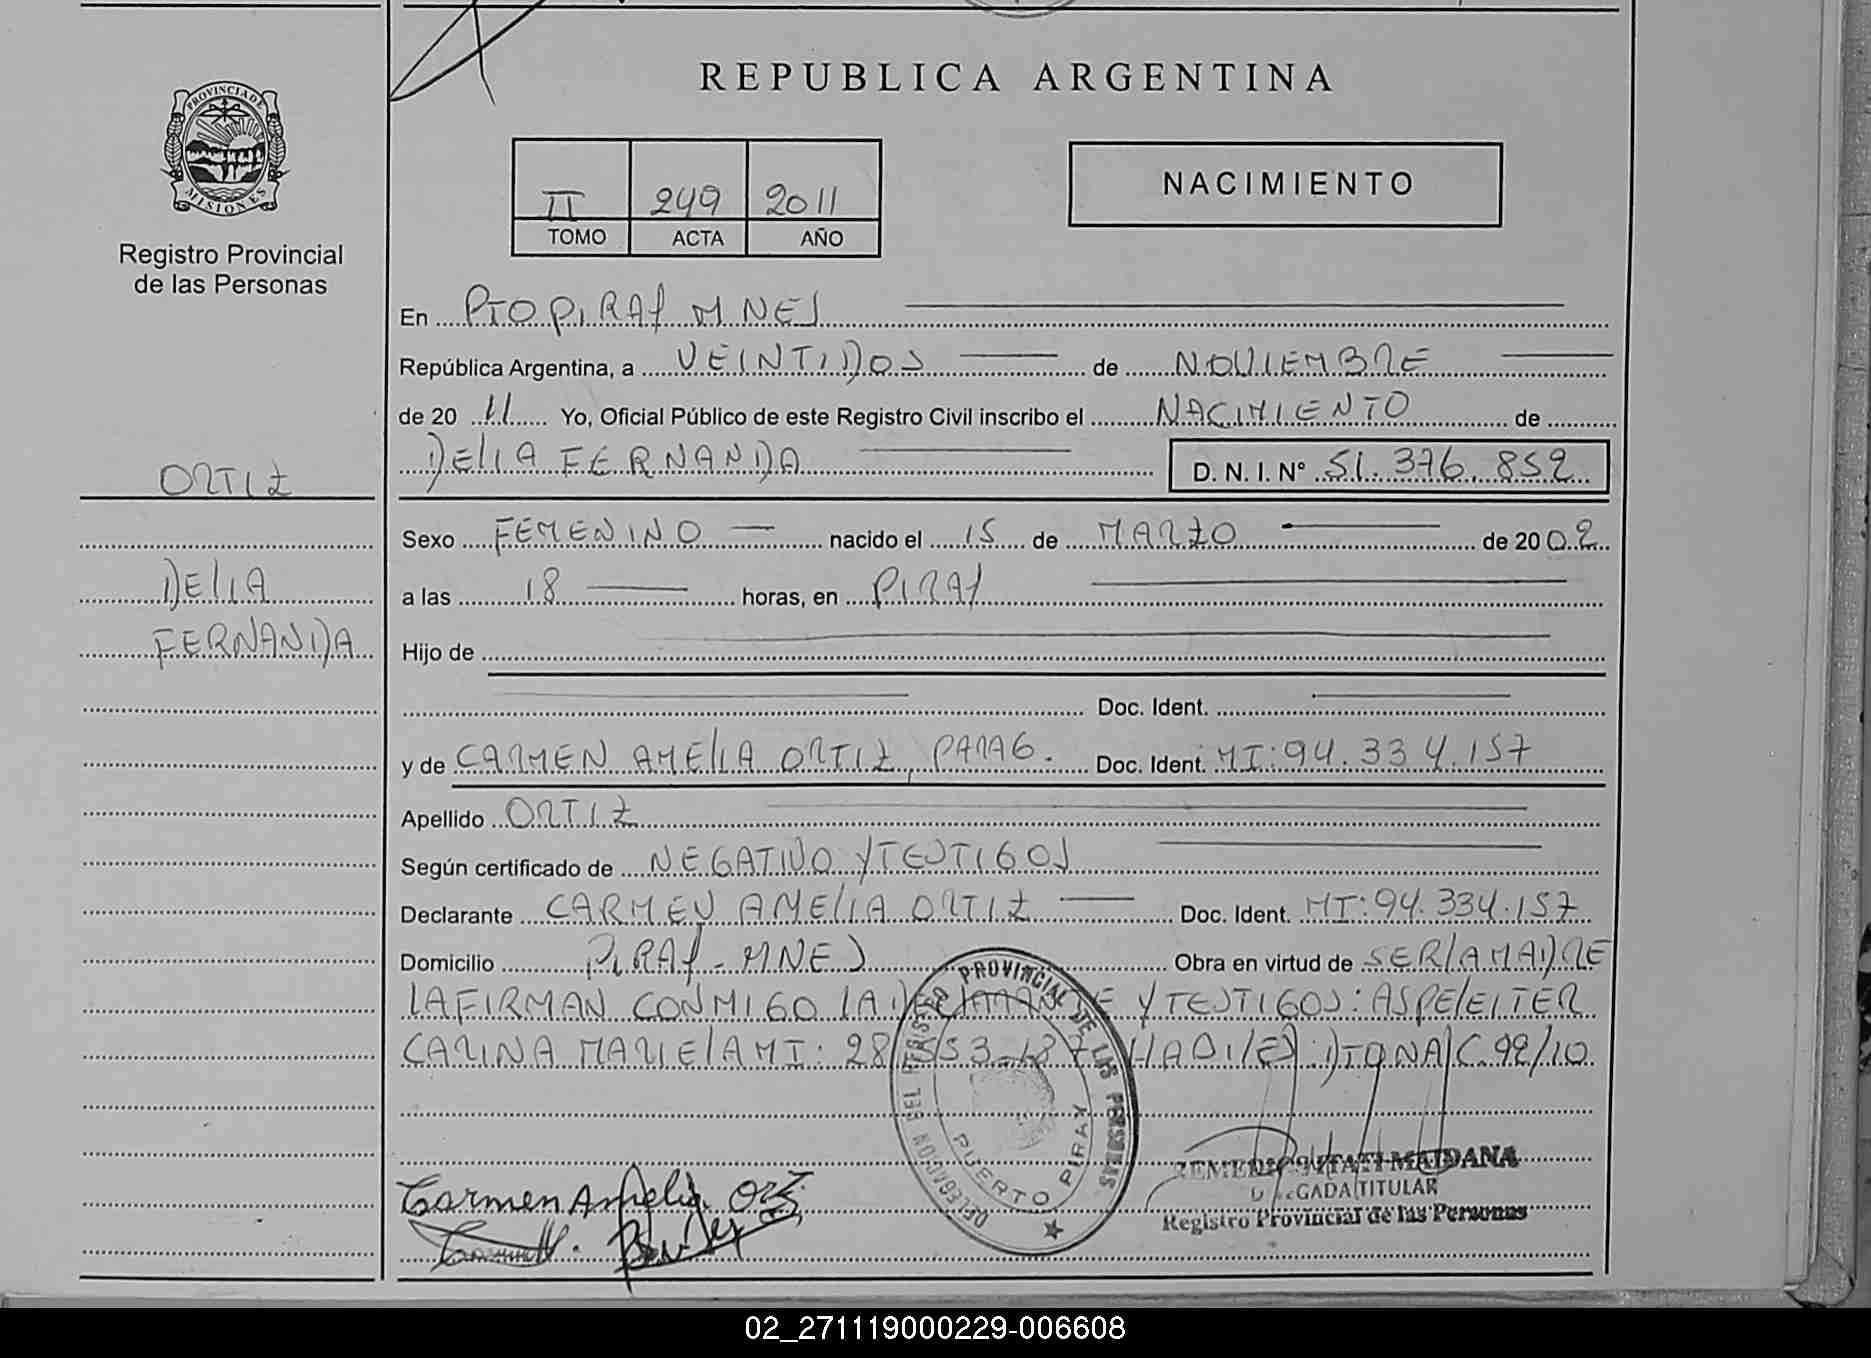 REPUBLICA ARGENTINA
PROVINCIA DE
MISIONES
Registro Provincial
de las Personas
II 249 2011
TOMO ACTA AÑO
NACIMIENTO
En PTO PIRAY MNES
República Argentina, a VEINTIDOS de NOVIEMBRE
de 20 11 Yo, Oficial Público de este Registro Civil inscribo el NACIMIENTO de
DELIA FERNANDA D. N. I. N° 51.376.852
ORTIZ
DELIA
FERNANDA
Sexo FEMENINO nacido el 15 de MARZO de 2002
a las 18 horas, en PIRAY
Hijo de
Doc. Ident.
y de CARMEN AMELIA ORTIZ, PARAG. Doc. Ident. MI: 94.334.157
Apellido ORTIZ
Según certificado de NEGATIVO Y TESTIGOS
Declarante CARMEN AMELIA ORTIZ Doc. Ident. MI: 94.334.157
Domicilio PIRAY - MNES Obra en virtud de SER LA MADRE
LA FIRMAN CONMIGO LA DECLARANTE Y TESTIGOS: ASPELEITER
CARINA MARIELA MI: 28 HABILES DTO NAC. 92/10
DELEGACION DEL REGISTRO PROVINCIAL DE LAS PERSONAS
PUERTO PIRAY
Carmen Amelia Ortiz
MAIDANA
DELEGADA TITULAR
Registro Provincial de las Personas
02_271119000229-006608